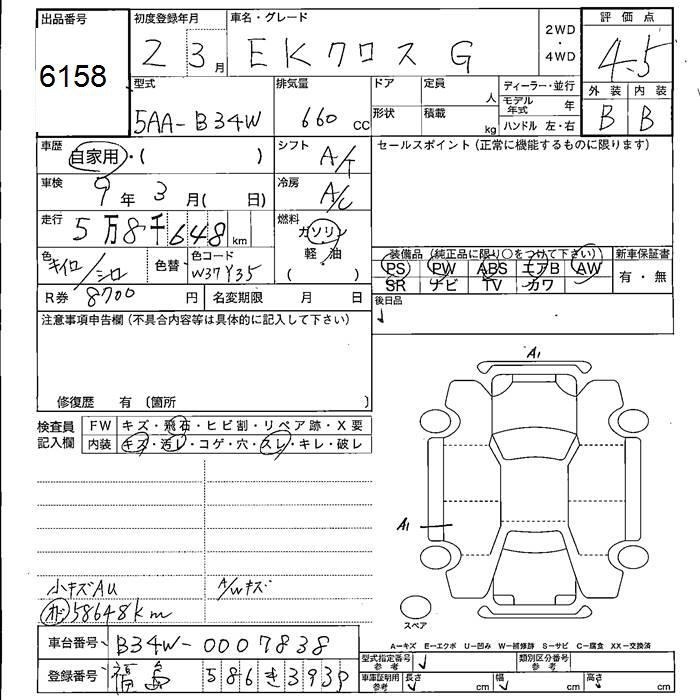 出品番号 初度登録年月 車名・グレード 評価点
6158 2 3月 EKクロス G 2WD・4WD 4.5
型式 排気量 ドア 定員 人 ディーラー・並行 外装 内装
5AA-B34W 660cc 形状 積載 kg モデル年式 年 B B
ハンドル 左・右
車歴 自家用・( ) シフト A/T セールスポイント(正常に機能するものに限ります)
車検 9年3月( 日) 冷房 A/C
走行 5万8千648km 燃料 ガソリン
軽・油
色 キイロ/シロ 色替 色コード W37Y35 ( ) 装備品(純正品に限り○をつけて下さい) 新車保証書
PS PW ABS エアB AW 有・無
SR ナビ TV カワ
R券 8700円 名変期限 月 日 後日品
注意事項申告欄(不具合内容等は具体的に記入して下さい)
修復歴 有 〔箇所 〕
検査員記入欄 FW キズ・飛石・ヒビ割・リペア跡・X要
内装 キズ・汚レ・コゲ・穴・スレ・キレ・破レ
A1
A1
小キズAU A/Wキズ
オド58648km
スペア
A-キズ E-エクボ U-凹み W-補修跡 S-サビ C-腐食 XX-交換済
車台番号 B34W-0007838 型式指定番号 参考 類別区分番号 参考
登録番号 福島 586き3939 車庫証明用 参考 長さ cm 幅 cm 高さ cm